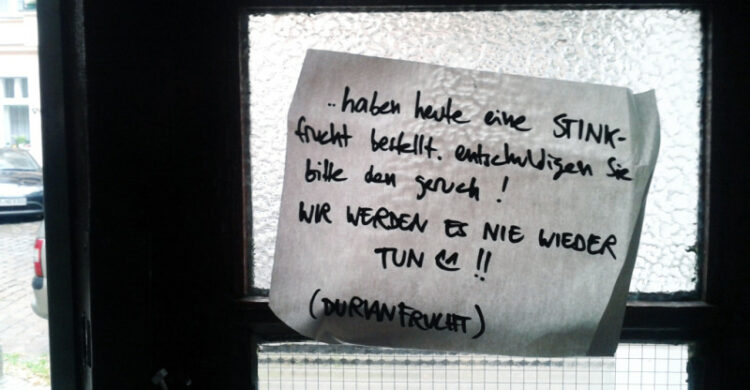 .. haben heute eine STINK-
frucht bestellt. entschuldigen Sie
bitte den geruch !
WIR WERDEN ES NIE WIEDER
TUN !!
(DURIANFRUCHT)